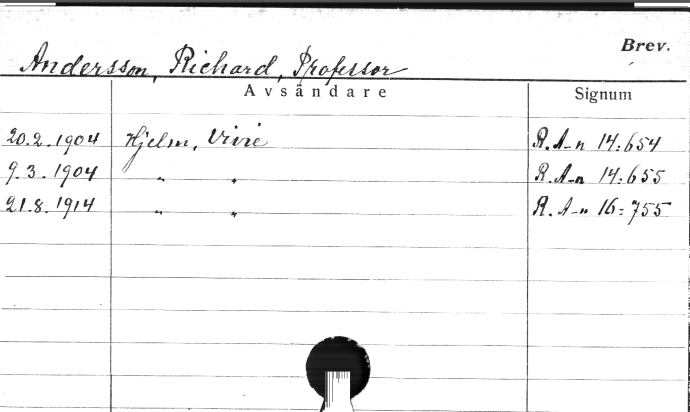 Brev.
Andersson, Richard, Professor
Avsändare Signum
20.2.1904 Hjelm, Vivie R.A-n 14:654
9.3.1904 " " R.A-n 14:655
21.8.1914 " " R.A-n 16:755